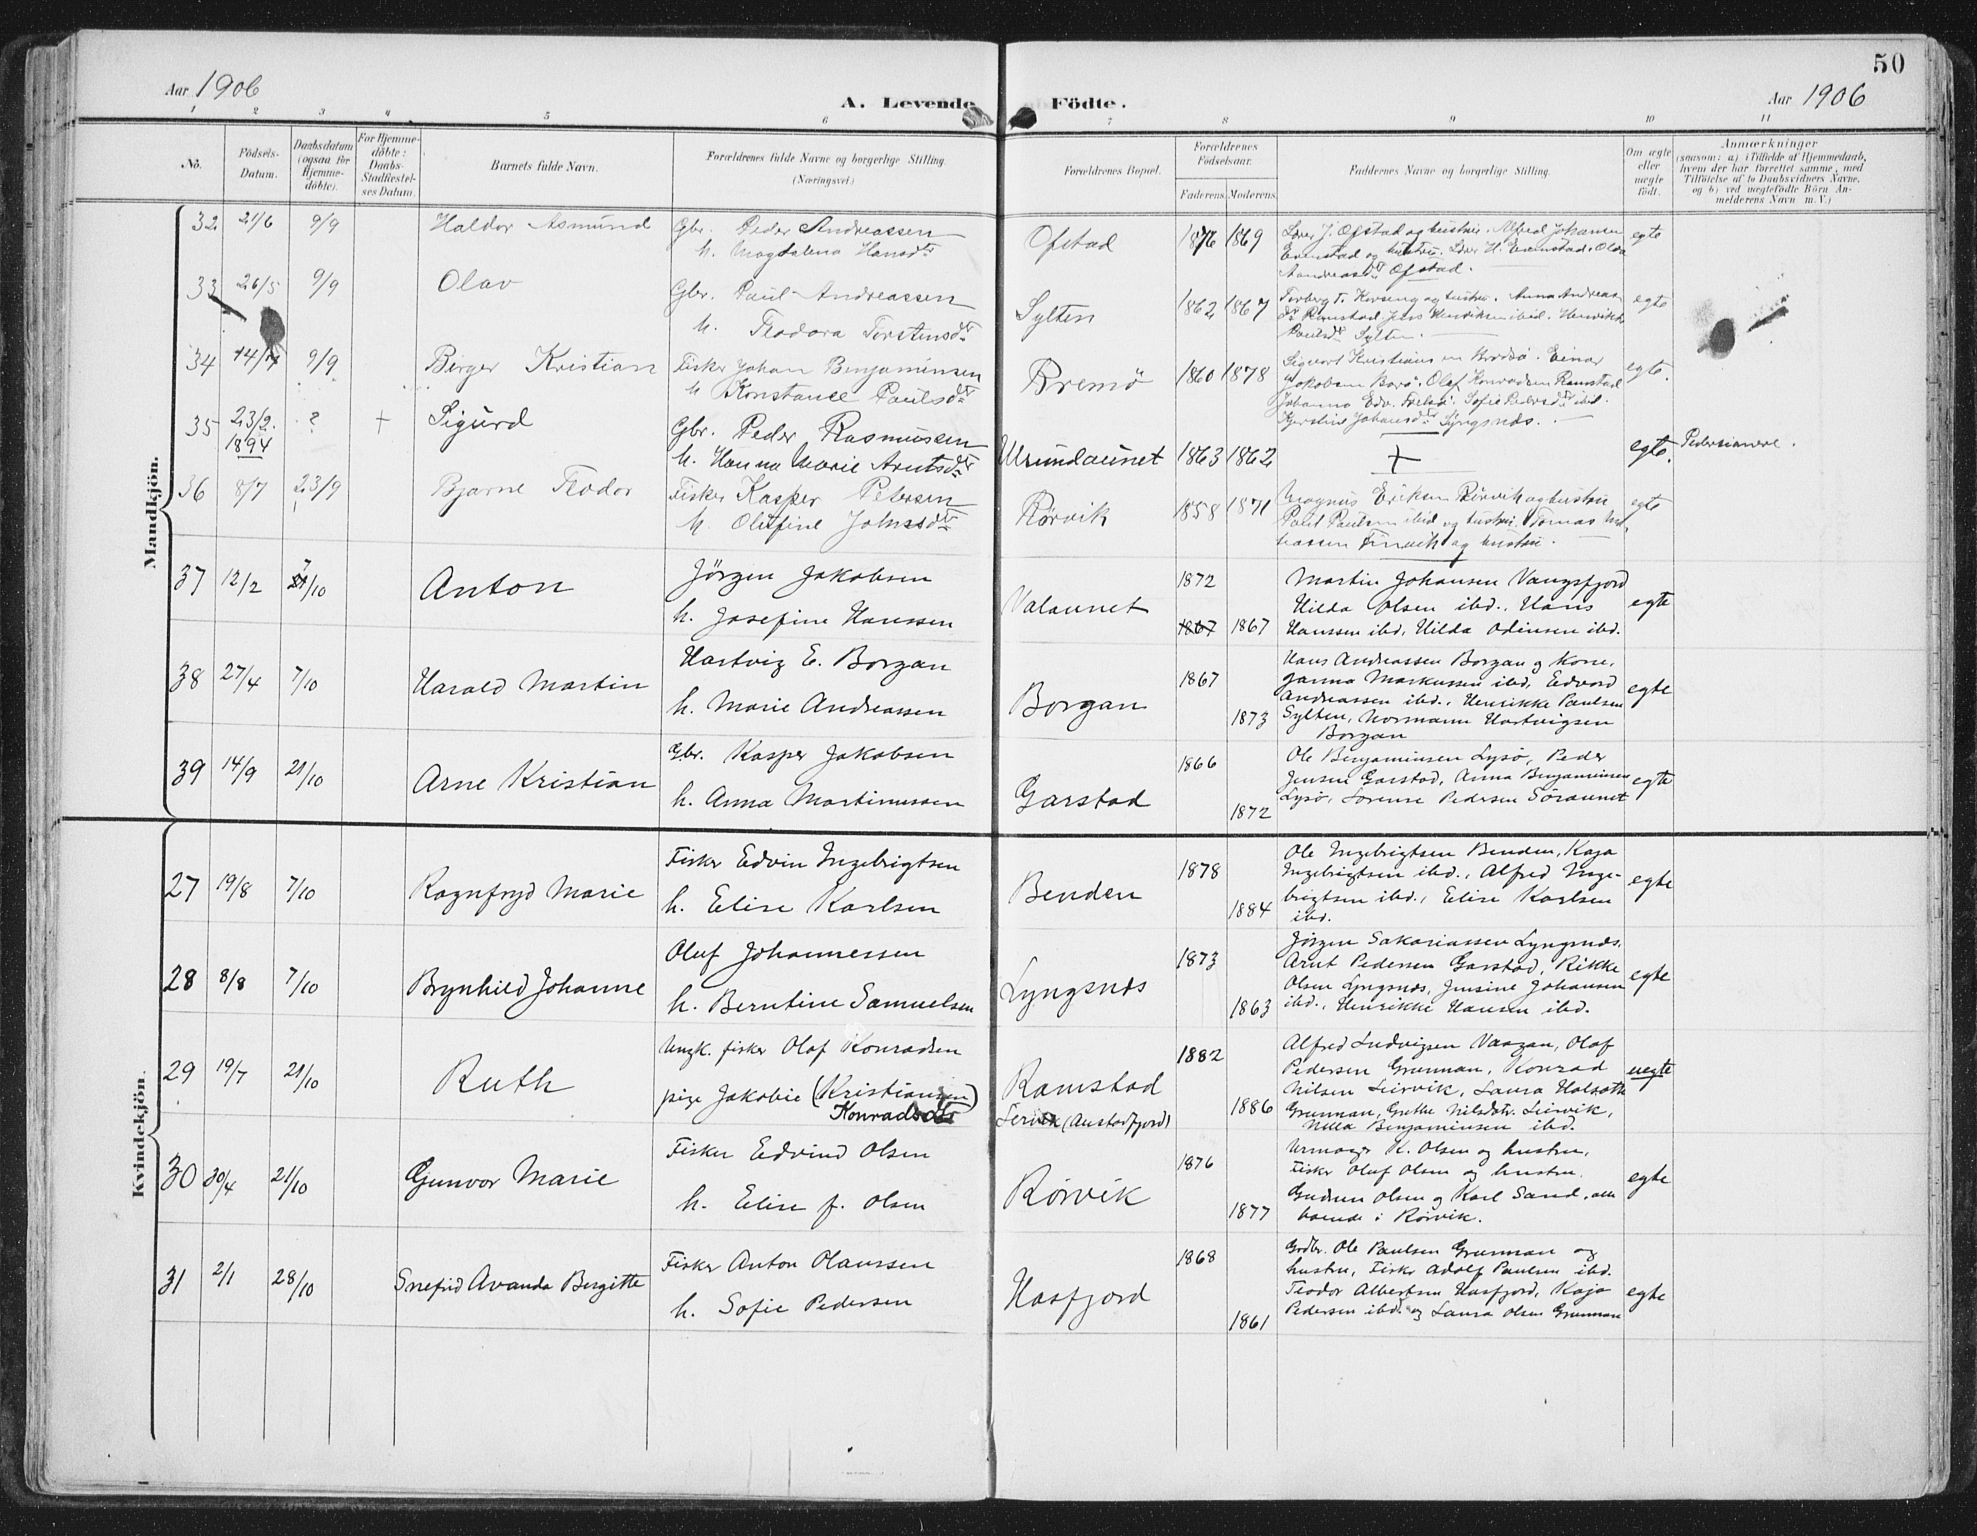 50
Aar 1906
A. Levende Födte.
Aar 1906
1 2 3 4 5 6 7 8 9 10 11
No.
Födsels-Datum.
Daabsdatum (ogsaa for Hjemme-döbte).
For Hjemme-döbte: Daabs-Stadfæstel-ses Datum.
Barnets fulde Navn.
Forældrenes fulde Navne og borgerlige Stilling.
(Næringsvei.)
Forældrenes Bopæl.
Forældrenes Födselsaar.
Faderens Moderens
Faddernes Navne og borgerlige Stilling.
Om ægte eller uægte födt.
Anmærkninger
(saasom: a) i Tilfælde af Hjemmedaab,
hvem der har forrettet samme, med
Tilföielse af to Daabsvidners Navne,
og b) ved uægtefödte Börn An-
melderens Navn m. V.)
Mandkjön.
32 21/6 9/9 Haldor Asmund Gbr. Peder Andreassen
h. Magdalena Hansdtr
Ofstad 1876 1869
Lærer J. Ofstad og hustru. Alfred Johansen
Evenstad og hustru. Lærer H. Evenstad. Olda
Andreasdtr Ofstad.
egte
33 26/5 9/9 Olav Gbr. Paul Andreassen
h. Teodora Torstensdtr
Sylten 1862 1867
Torberg T. og hustru. Anna Andreas-
dtr Ramstad Jens Henriksen ibid. Henrikke
Paulsdtr Sylten.
egte
34 14/7 9/9 Birger Kristian Fisker Johan Benjaminsen
h. Konstance Paulsdtr
Bremö 1860 1878
Sigvart Kristiansen Brodsø. Einar
Jakobsen Borö. Olaf Konradsen Ramstad
Johanna Edv. Sofie Pedersdtr ibid.
Kjerstine Johansdtr Lyngsnæs.
egte.
35 23/2. 1894 ? + Sigurd Gbr. Peder Rasmussen
h. Hanna Marie Arntsdtr
Ulsundaunet 1863 1862 + egte.
36 8/7 23/9 Bjarne Teodor Fisker Kasper Petersen
h. Olufine Johnsdtr
Rørvik 1858 1871
Magnus Eriksen Rörvik og hustru
Paul Paulsen ibid og hustru. Tomas
Finvik og hustru.
egte
37 12/2 7/10 Anton Jörgen Jakobsen
h. Josefine Hanssen
Valaunet 1872 1867 1867
Martin Johansen Vangsfjord
Hilda Olsen ibd., Hans
Hanssen ibd, Hilda Odinsen ibd.
egte
38 27/4 7/10 Harald Martin Hartvig E. Borgan
h. Marie Andreassen
Borgan 1867 1873
Hans Andreassen Borgan og Kone,
Janna Markussen ibid, Edvard
Andreassen ibd., Henrikke Paulsen
Sylten, Normann Hartvigsen
Borgan
egte
39 14/9 21/10 Arne Kristian Gbr. Kasper Jakobsen
h. Anna Martinussen
Garstad 1866 1872
Ole Benjaminsen Lysø, Peder
Jensen Garstad, Anna Benjaminsen
Lysø, Lorense Pedersen Søraunet
egte
Kvindekjön.
27 19/8 7/10 Ragnfryd Marie Fisker Edvin Ingebrigtsen
h. Elise Karlsen
Benden 1878 1884
Ole Ingebrigtsen Benden, Kaja
Ingebrigtsen ibd., Alfred Inge-
brigtsen ibd., Elise Karlsen
ibd.
egte
28 8/8 7/10 Brynhild Johanne Oluf Johannessen
h. Berntine Samuelsen
Lyngsnæs 1873 1863
Jörgen Sakariassen Lyngsnæs,
Arnt Pedersen Garstad, Rikke
Olsen Lyngsnæs, Jensine Johansen
ibd., Henrikke Hansen ibd.
egte
29 19/7 21/10 Ruth Ungk. fisker Olaf Konradsen
pige Jakobie (Kristiansen)
Konradsdtr
Ramstad
(Austafjord)
1882 1886
Alfred Ludvigsen Vaagan, Olaf
Pedersen Grunnan, Konrad
Nilsen Leirvik, Laura
Grunnan, Grethe Nilsdtr. Leirvik,
Benjaminsen ibd.
uegte
30 30/4 21/10 Gunvor Marie Fisker Edvind Olsen
h. Elise f. Olsen
Rörvik 1876 1877
Urmager K. Olsen og hustru,
Fisker Oluf Olsen og hustru
Gudrun Olsen og Karl Sand, alle
boende i Rörvik.
egte
31 2/1 28/10 Snefrid Avanda Bergitte Fisker Anton Olaussen
h. Sofie Pedersen
Hasfjord 1868 1861
Grdbr. Ole Paulsen Grunnan og
hustru, Fisker Adolf Paulsen ibd.
Teodor Albertsen Hasfjord, Kaja
Pedersen ibd. og Laura Olsen Grunnan
egte